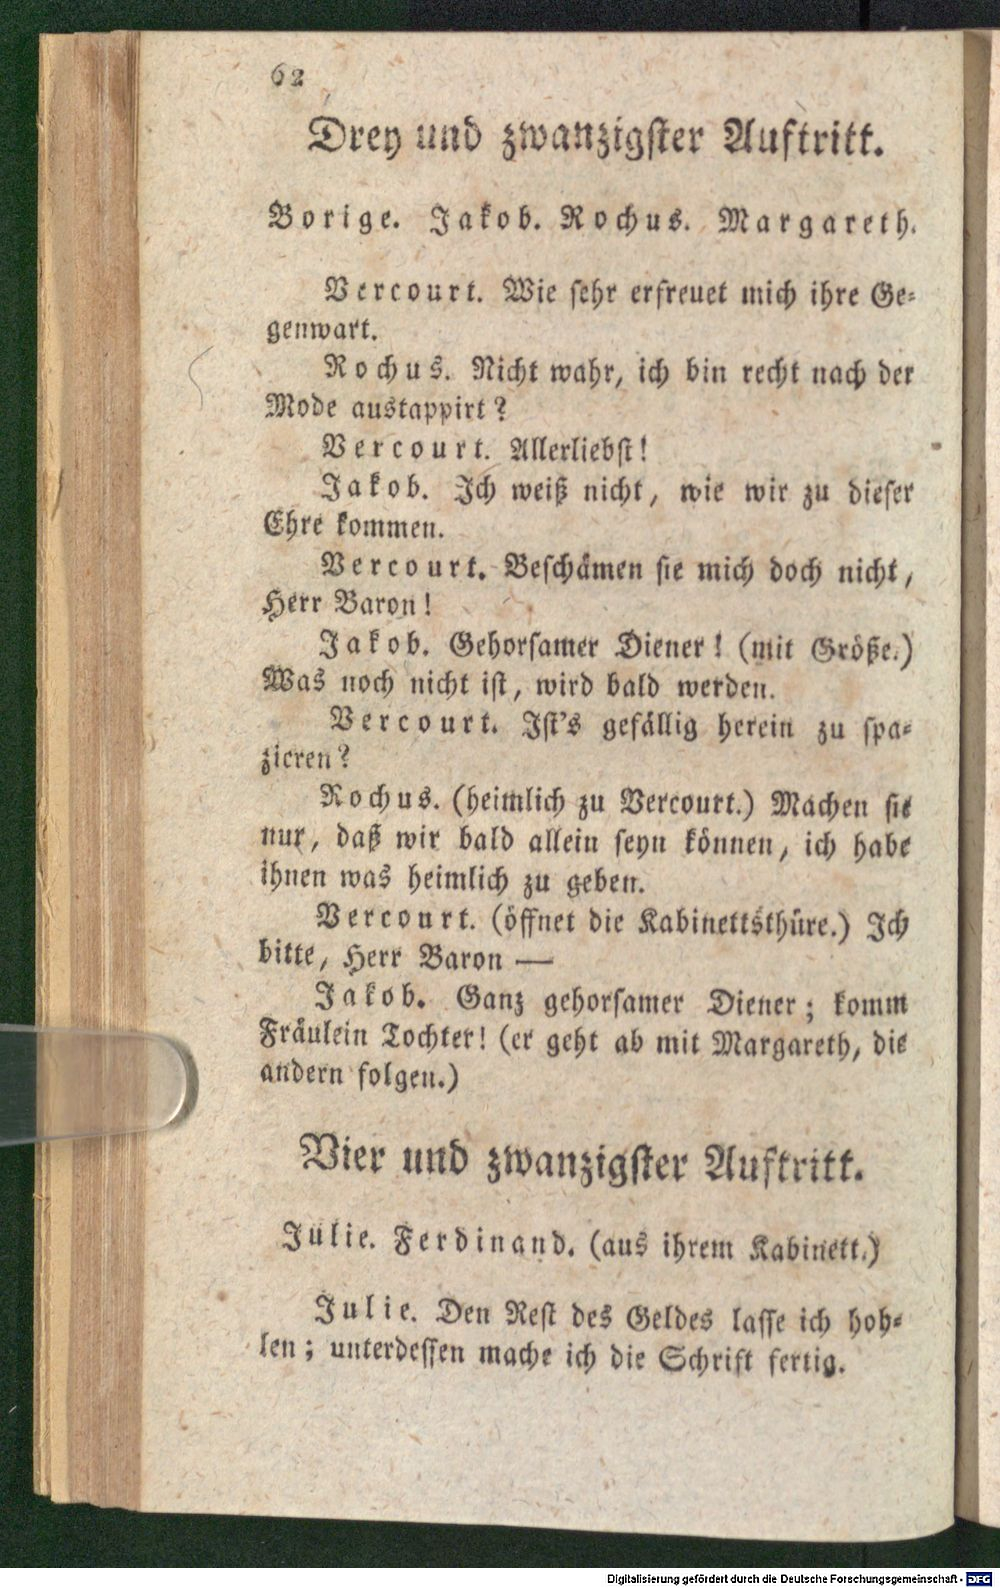 62
Drey und zwanzigster Auftritt.
Vorige. Jakob. Rochus. Margareth.
Vercourt. Wie sehr erfreuet mich ihre Ge-
genwart.
Rochus. Nicht wahr, ich bin recht nach der
Mode austappirt?
Vercourt. Allerliebst!
Jakob. Ich weiß nicht, wie wir zu dieser
Ehre kommen.
Vercourt. Beschämen sie mich doch nicht,
Herr Baron!
Jakob. Gehorsamer Diener! (mit Größe.)
Was noch nicht ist, wird bald werden.
Vercourt. Ist's gefällig herein zu spa-
zieren?
Rochus. (heimlich zu Vercourt.) Machen sie
nur, daß wir bald allein seyn können, ich habe
ihnen was heimlich zu geben.
Vercourt. (öffnet die Kabinettsthüre.) Ich
bitte, Herr Baron —
Jakob. Ganz gehorsamer Diener; komm
Fräulein Tochter! (er geht ab mit Margareth, die
andern folgen.)
Vier und zwanzigster Auftritt.
Julie. Ferdinand. (aus ihrem Kabinett.)
Julie. Den Rest des Geldes lasse ich hoh-
len; unterdessen mache ich die Schrift fertig.
Digitalisierung gefördert durch die Deutsche Forschungsgemeinschaft - DFG